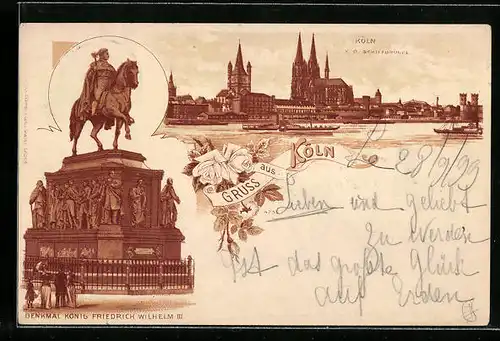 KÖLN
GRUSS
aus
KÖLN
28/9/99
Lieben und geliebt
zu werden
Ist das größte Glück
auf Erden
DENKMAL KÖNIG FRIEDRICH WILHELM III